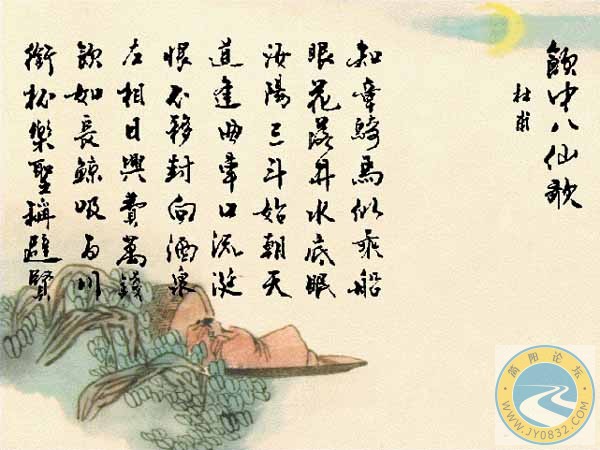 飲中八仙歌
杜甫
知章騎馬似乘船
眼花落井水底眠
汝陽三斗始朝天
道逢曲車口流涎
恨不移封向酒泉
左相日興費萬錢
飲如長鯨吸百川
銜杯樂聖稱避賢
简阳论坛
WWW.JY0832.COM